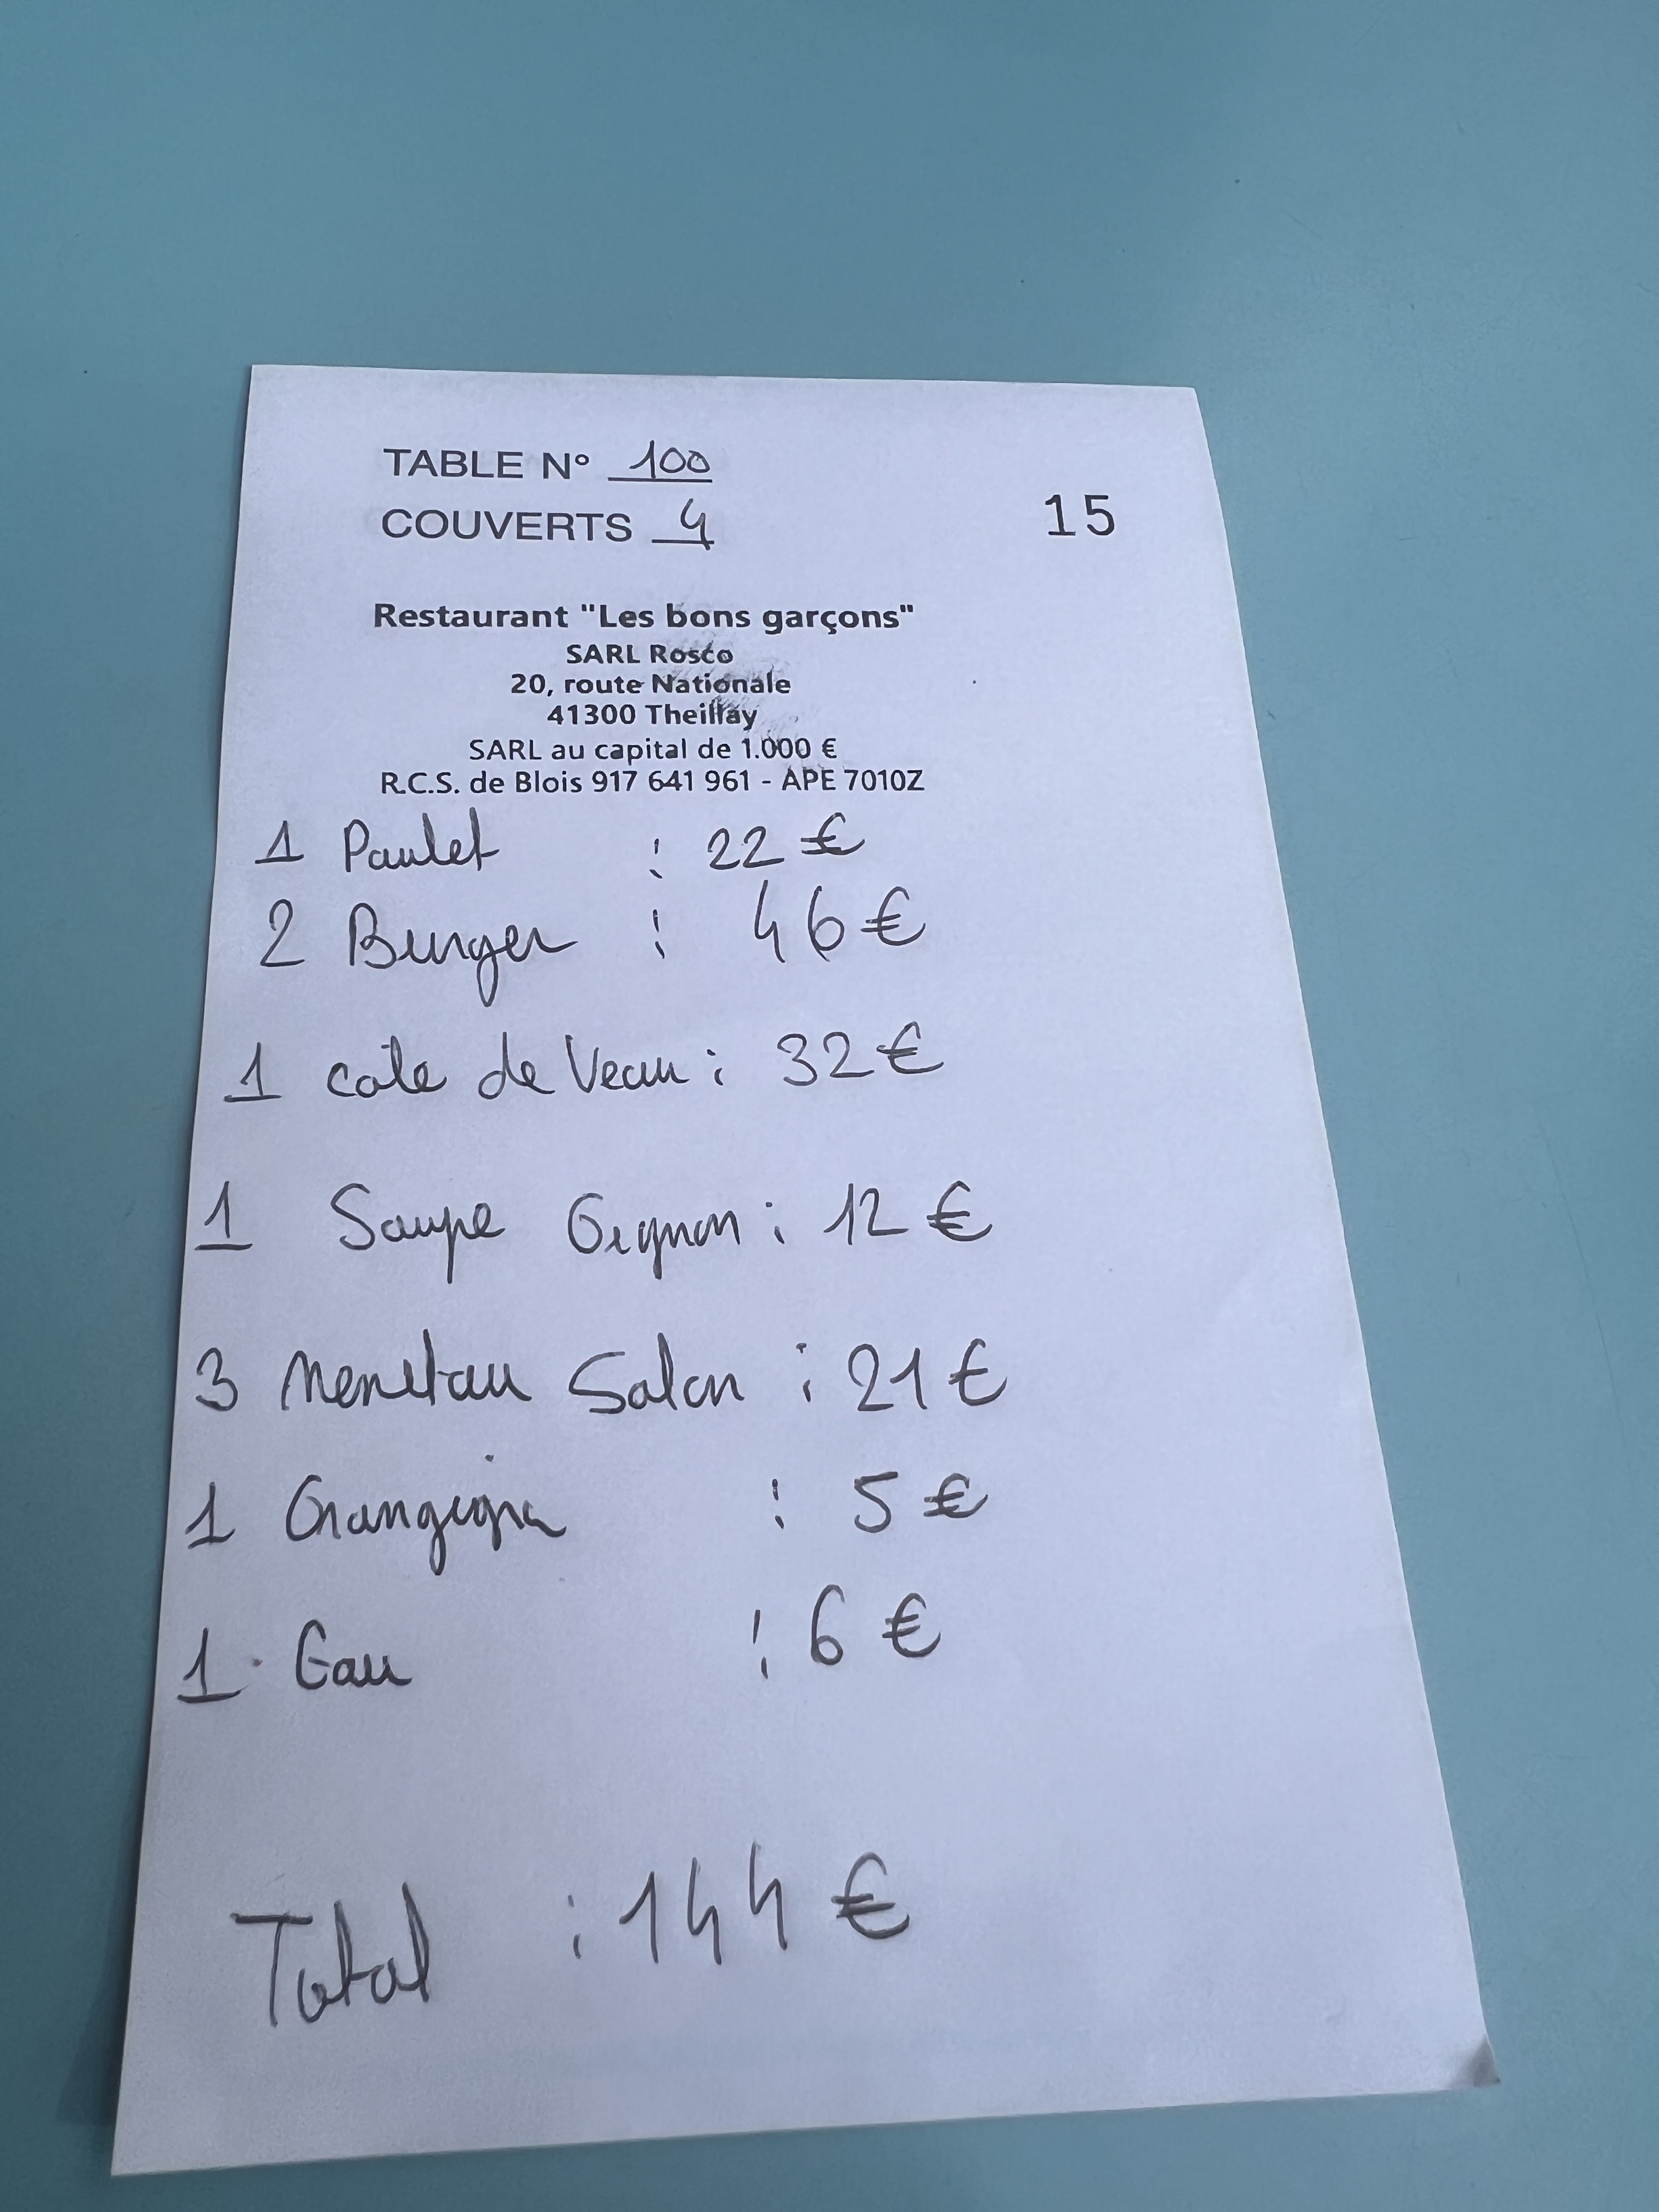 TABLE N° 100
COUVERTS 4
15
Restaurant "Les bons garçons"
SARL Rosco
20, route Nationale
41300 Theillay
SARL au capital de 1.000 €
R.C.S. de Blois 917 641 961 - APE 7010Z
1 Poulet : 22 €
2 Burger : 46 €
1 côte de Veau : 32 €
1 Soupe Oignon : 12 €
3 Menetou Salon : 21 €
1 Orangina : 5 €
1 Eau : 6 €
Total : 144 €